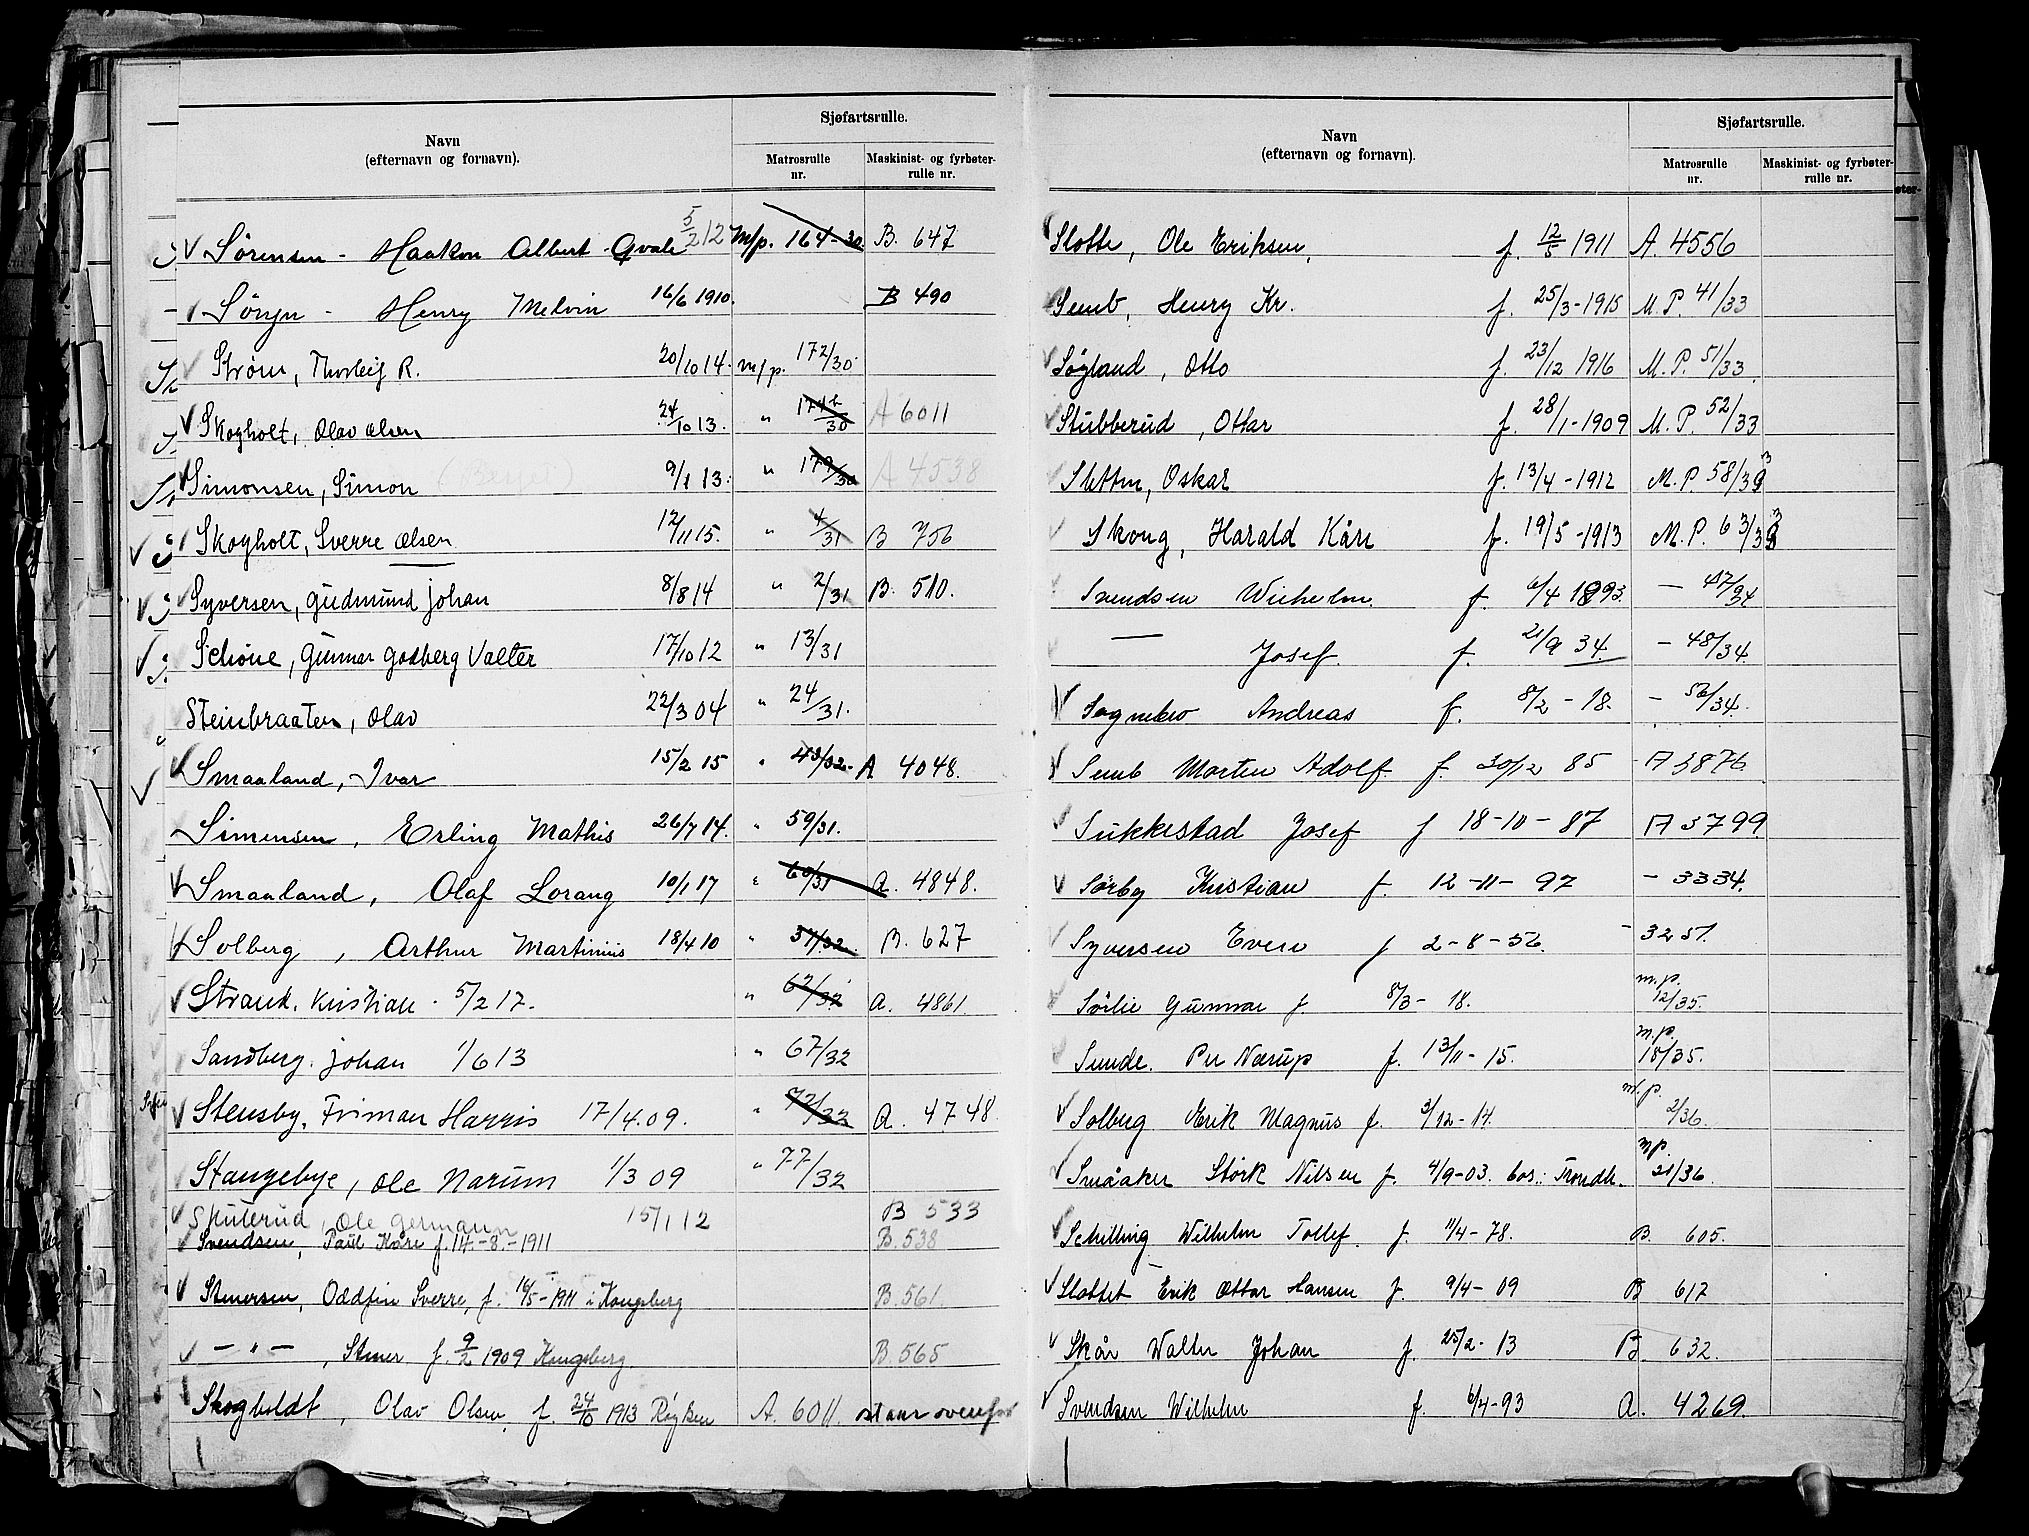 Navn
(efternavn og fornavn).
Sjøfartsrulle.
Matrosrulle nr.
Maskinist- og fyrbøter-rulle nr.
Sörensen - Haakon Albert Qvale 5/2 12 M/p. 164-30 B. 647
Henry Melvin 16/6 1910. B 490
Strøm, Thorleif R. 20/10 14. m/p. 172/30
Skogholt, Olav Olsen 24/10 13. " 30 A 6011
Simonsen, Simon (Berget) 9/1 13. " 179/30 A 4538
Skogholt, Sverre Olsen 12/11 15. " 4/31 B 756
Syversen, Gudmund Johan 8/8 14 " 2/31 B. 510.
Schöne, Gunnar Godberg Valter 17/10 12 " 13/31
Steinbraaten, Olav 22/3 04 " 24/31.
Smaaland, Ivar 15/2 15 " 43/32- A 4048.
Simensen, Erling Mathis 26/7 14. " 59/31.
Smaaland, Olaf Lorang 10/1 17 " 60/31 A. 4848.
Solberg, Arthur Martinius 18/4 10 " 31/32. B. 627
Strand, Kristian. 5/2 17. " 67/32 A. 4861.
Sandberg. Johan 1/6 13 " 67/32
Stensby, Friman Harris 17/4.09. " 72/32 A. 4748.
Stangebye, Ole Narum 1/3 09 " 77/32
Sputerud, Ole Germann 15/1 12 B 533
Svendsen, Paul Kåre f. 14.-8.-1911 B. 538
Stenersen, Oddfin Sverre, f. 16/5-1911 i Kongsberg B. 561.
- " - , Stener f. 9/2 1909 Kongsberg B. 565
Skogholdt, Olav Olsen, f. 24/10 1913 Röyken A. 6011. staar ovenfor
Navn
(efternavn og fornavn).
Sjøfartsrulle.
Matrosrulle nr.
Maskinist- og fyrbøter-rulle nr.
Slotte, Ole Eriksen, f. 12/5 1911 A. 4556
Semb, Henry Kr. f. 25/3-1915 M. P. 41/33
Søgland, Otto f. 23/12 1916 M. P. 51/33
Stubberud, Ottar f. 28/1-1909 M. P. 52/33
Sletten, Oskar f. 13/4-1912 M. P. 58/33
Skoug, Harald Kåre f. 19/5-1913 M. P. 63/33
Svendsen Wilhelm. f. 6/4 1893. - 47/34
— Josef. f. 21/9 34. - 48/34.
Sognebo Andreas f. 8/2 - 18. - 56/34.
Semb Morten Adolf f 30/12 85 A 3876
Sukkestad Josef f 18-10-87 A 3799
Sörby Kristian f. 12-11-97 - 3334.
Syversen Even f 2-8-56. - 3251.
Sörlie Gunnar f. 8/3 - 18. m.p. 12/35.
Sunde. Per Nærup f. 13/11-15. m.p. 18/35.
Solberg Erik Magnus f. 3/12-14. m.p. 2/36.
Småaker Störk Nilsen f. 4/9-03. bos.: Trondh. m.p. 21/36.
Schilling Wilhelm Tollef. f. 11/4-78. B. 605.
Slottet Erik Ottar Hansen f. 9/4-09 B 617
Skår Walter Johan f. 25/2-13 B. 632.
Svendsen Wilhelm f. 6/4-93 A. 4269.